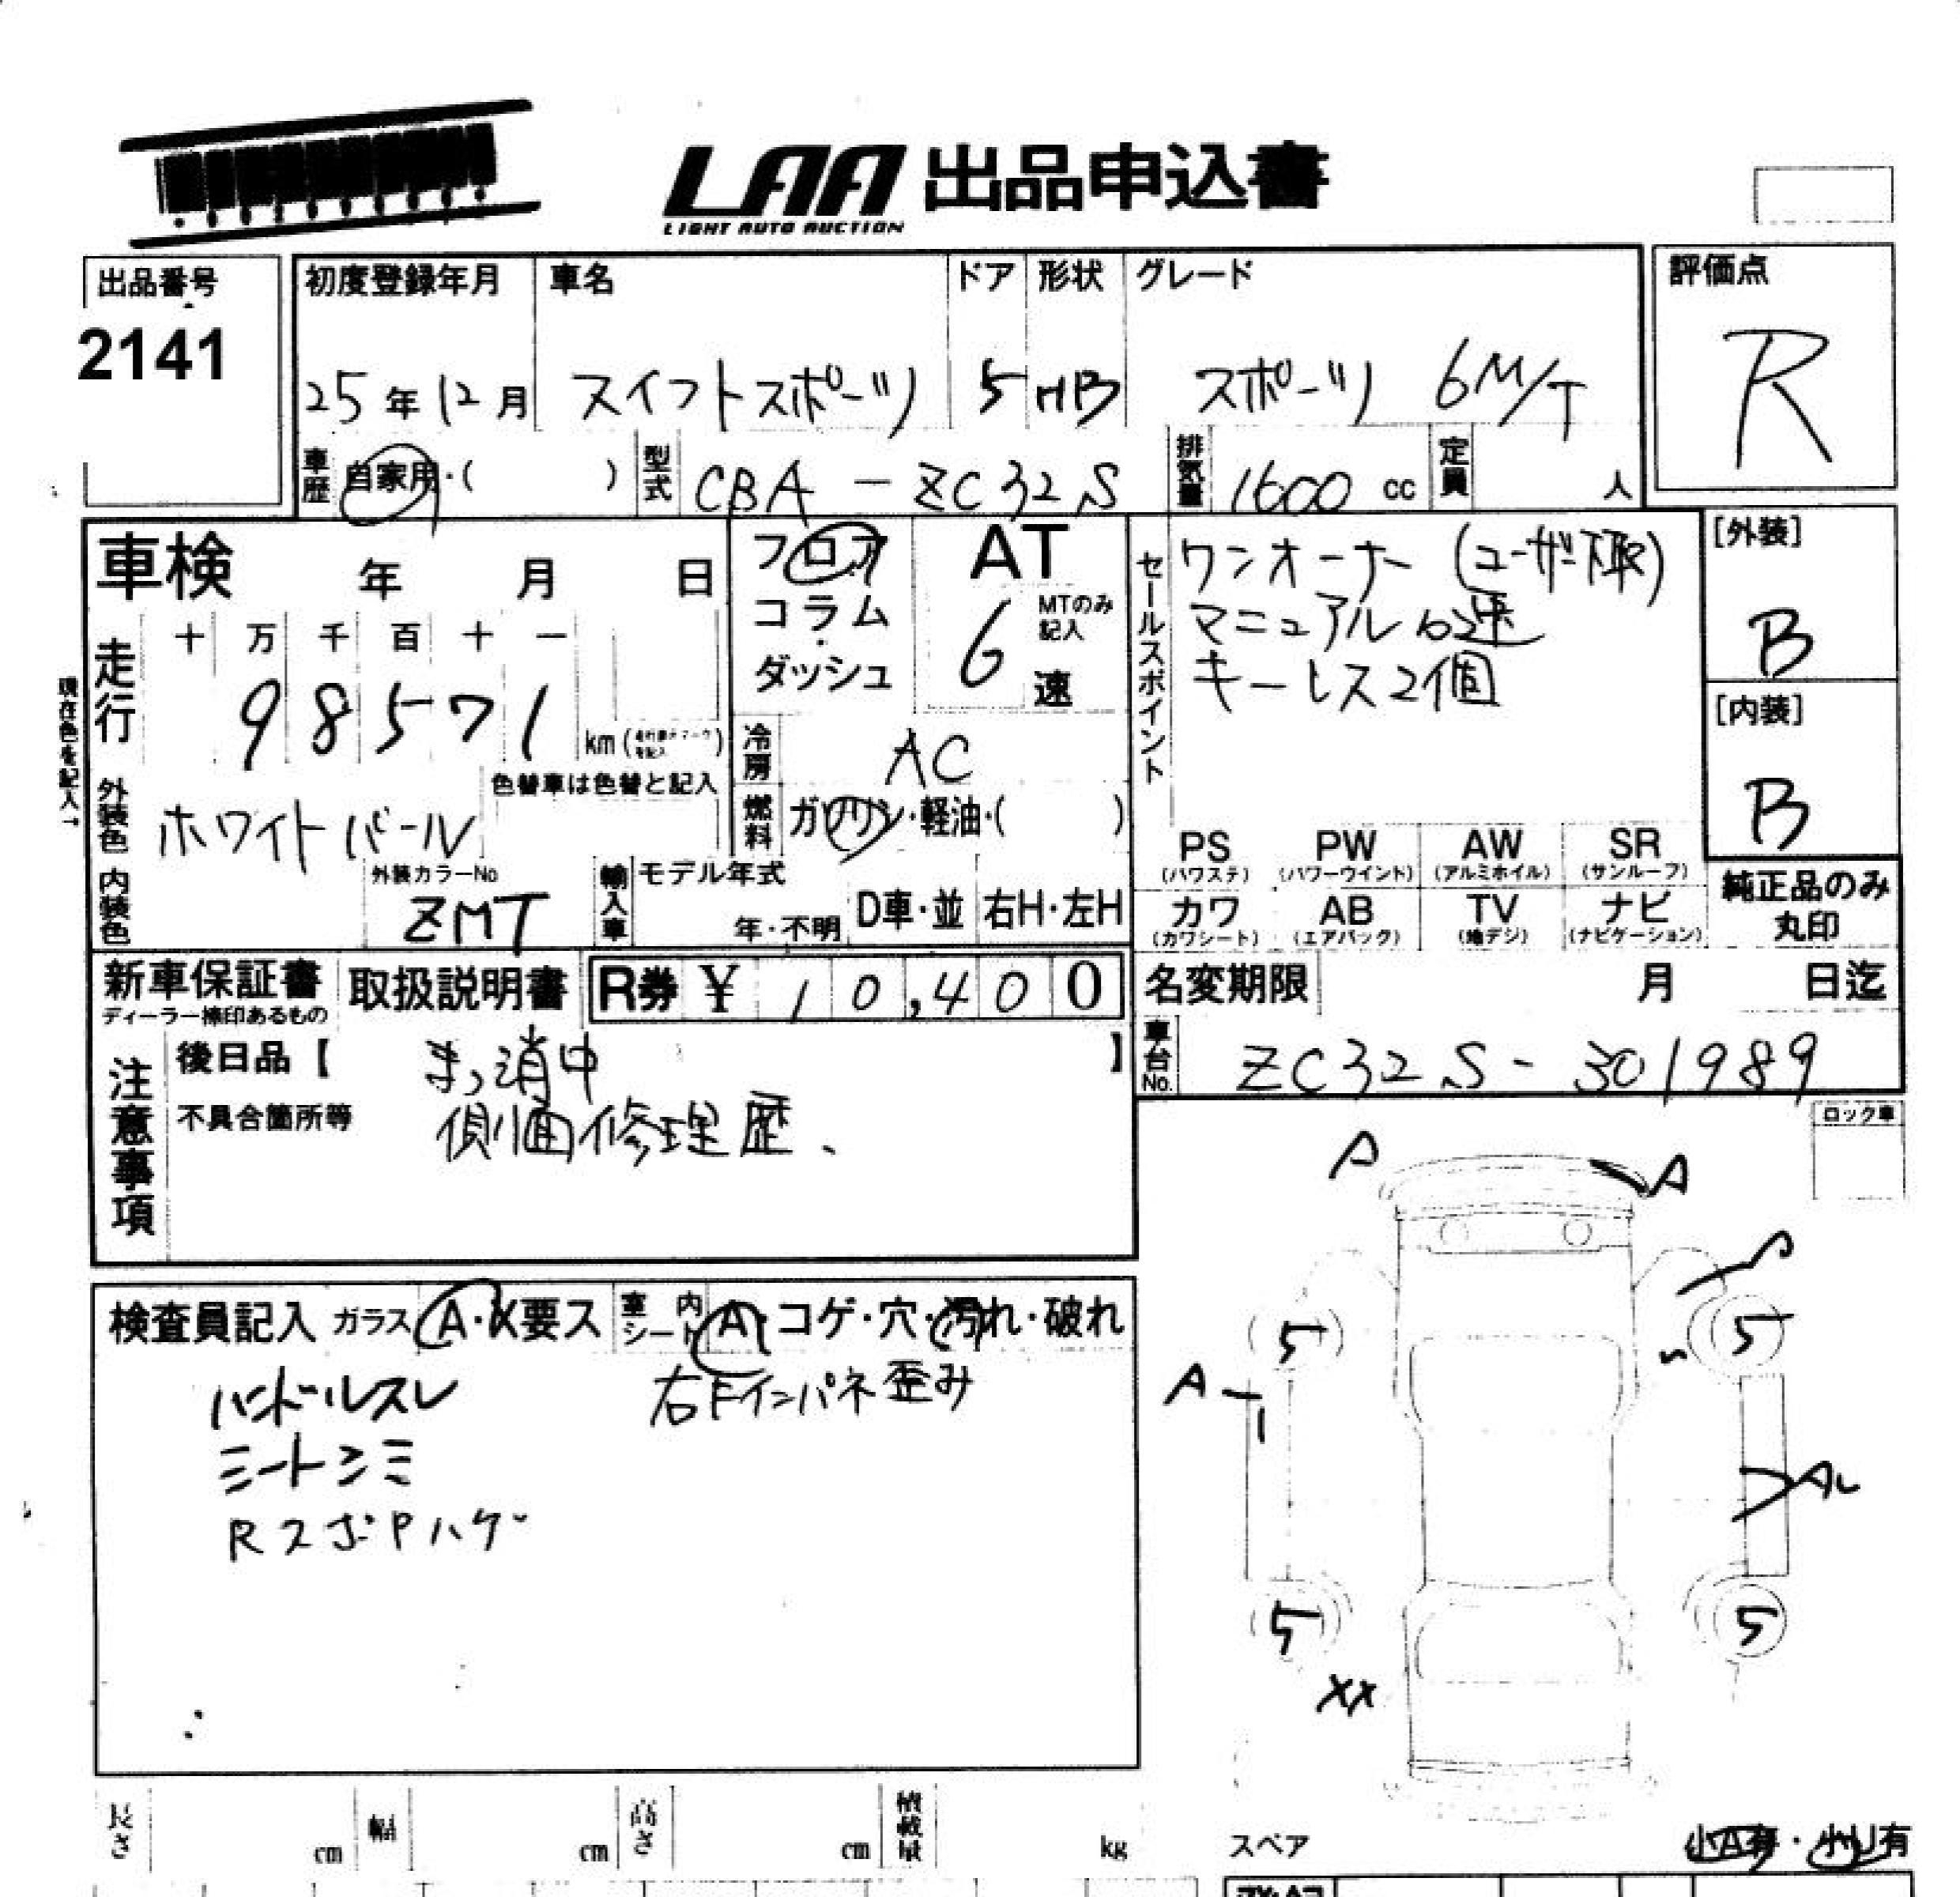 LAA 出品申込書
LIGHT AUTO AUCTION
出品番号
2141
初度登録年月 車名 ドア 形状 グレード
25年12月 スイフトスポーツ 5 HB スポーツ 6M/T
評価点
R
車歴 自家用・( ) 型式 CBA-ZC32S 排気量 1600 cc 定員 人
車検 年 月 日
フロア
コラム
ダッシュ
AT
MTのみ
記入
6 速
セールスポイント
ワンオーナー(ユーザー下取)
マニュアル6速
キーレス2個
[外装]
B
[内装]
B
走行
十 万 千 百 十 一
98571
km
現在色を記入→
色替車は色替と記入
冷房 AC
燃料 ガソリン・軽油・( )
外装色 ホワイトパール
内装色
外装カラーNo
ZMT
輸入車 モデル年式
年・不明 D車・並 右H・左H
PS (パワステ) PW (パワーウインド) AW (アルミホイル) SR (サンルーフ)
カワ (カワシート) AB (エアバック) TV (地デジ) ナビ (ナビゲーション)
純正品のみ
丸印
新車保証書
ディーラー捺印あるもの
取扱説明書
R券 ¥ 10,400
名変期限 月 日迄
車台No. ZC32S-301989
注意事項
後日品【 まっ消中 】
不具合箇所等 側面修理歴、
ロック車
A A
S
5 5
A
AU
5 5
XX
検査員記入 ガラス A・X要ス 車内シート A・コゲ・穴・汚れ・破れ
ハンドルスレ 右Fインパネ歪み
シートシミ
RスポPハゲ
長さ cm 幅 cm 高さ cm 積載量 kg
スペア
小A有・小U有